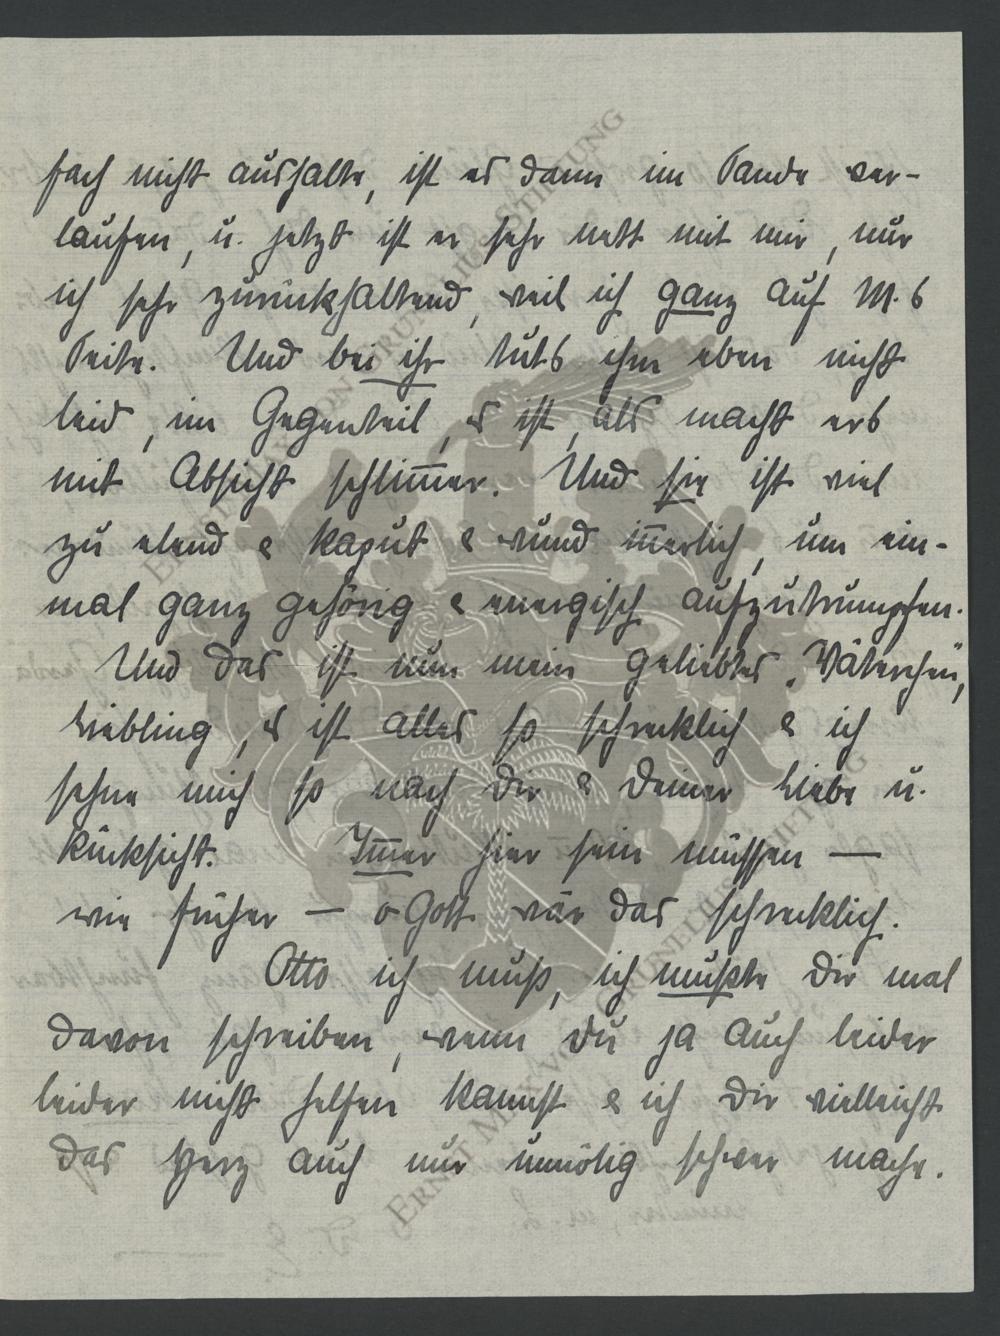 fach nicht aushalte, ist es dann im Sande ver-
laufen, u. jetzt ist er sehr nett mit mir, nur
ich sehr zurückhaltend, weil ich ganz auf M.s
Seite. Und bei ihr tuts ihm eben nicht
leid, im Gegenteil, es ist, als macht ers
mit Absicht schlimmer. Und sie ist viel
zu elend & kaput & wund innerlich, um ein-
mal ganz gehörig & energisch aufzutrumpfen.
Und das ist nun mein geliebtes „Väterchen“,
Liebling, es ist alles so schrecklich & ich
sehne mich so nach Dir & Deiner Liebe u.
Rücksicht. Immer hier sein müssen —
wie früher — o Gott wär das schrecklich.
Otto ich muß, ich mußte Dir mal
davon schreiben, wenn Du ja auch leider
leider nicht helfen kannst & ich Dir vielleicht
das Herz auch nur unnötig schwer mache.
ERNST MAX VON GRUNELIUS-STIFTUNG
ERNST MAX VON GRUNELIUS-STIFTUNG